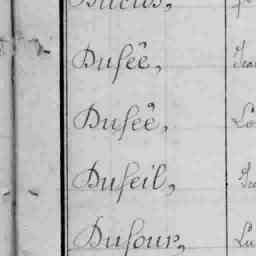 Dufeê,
Dufeê,
Dufeil,
Dufour,